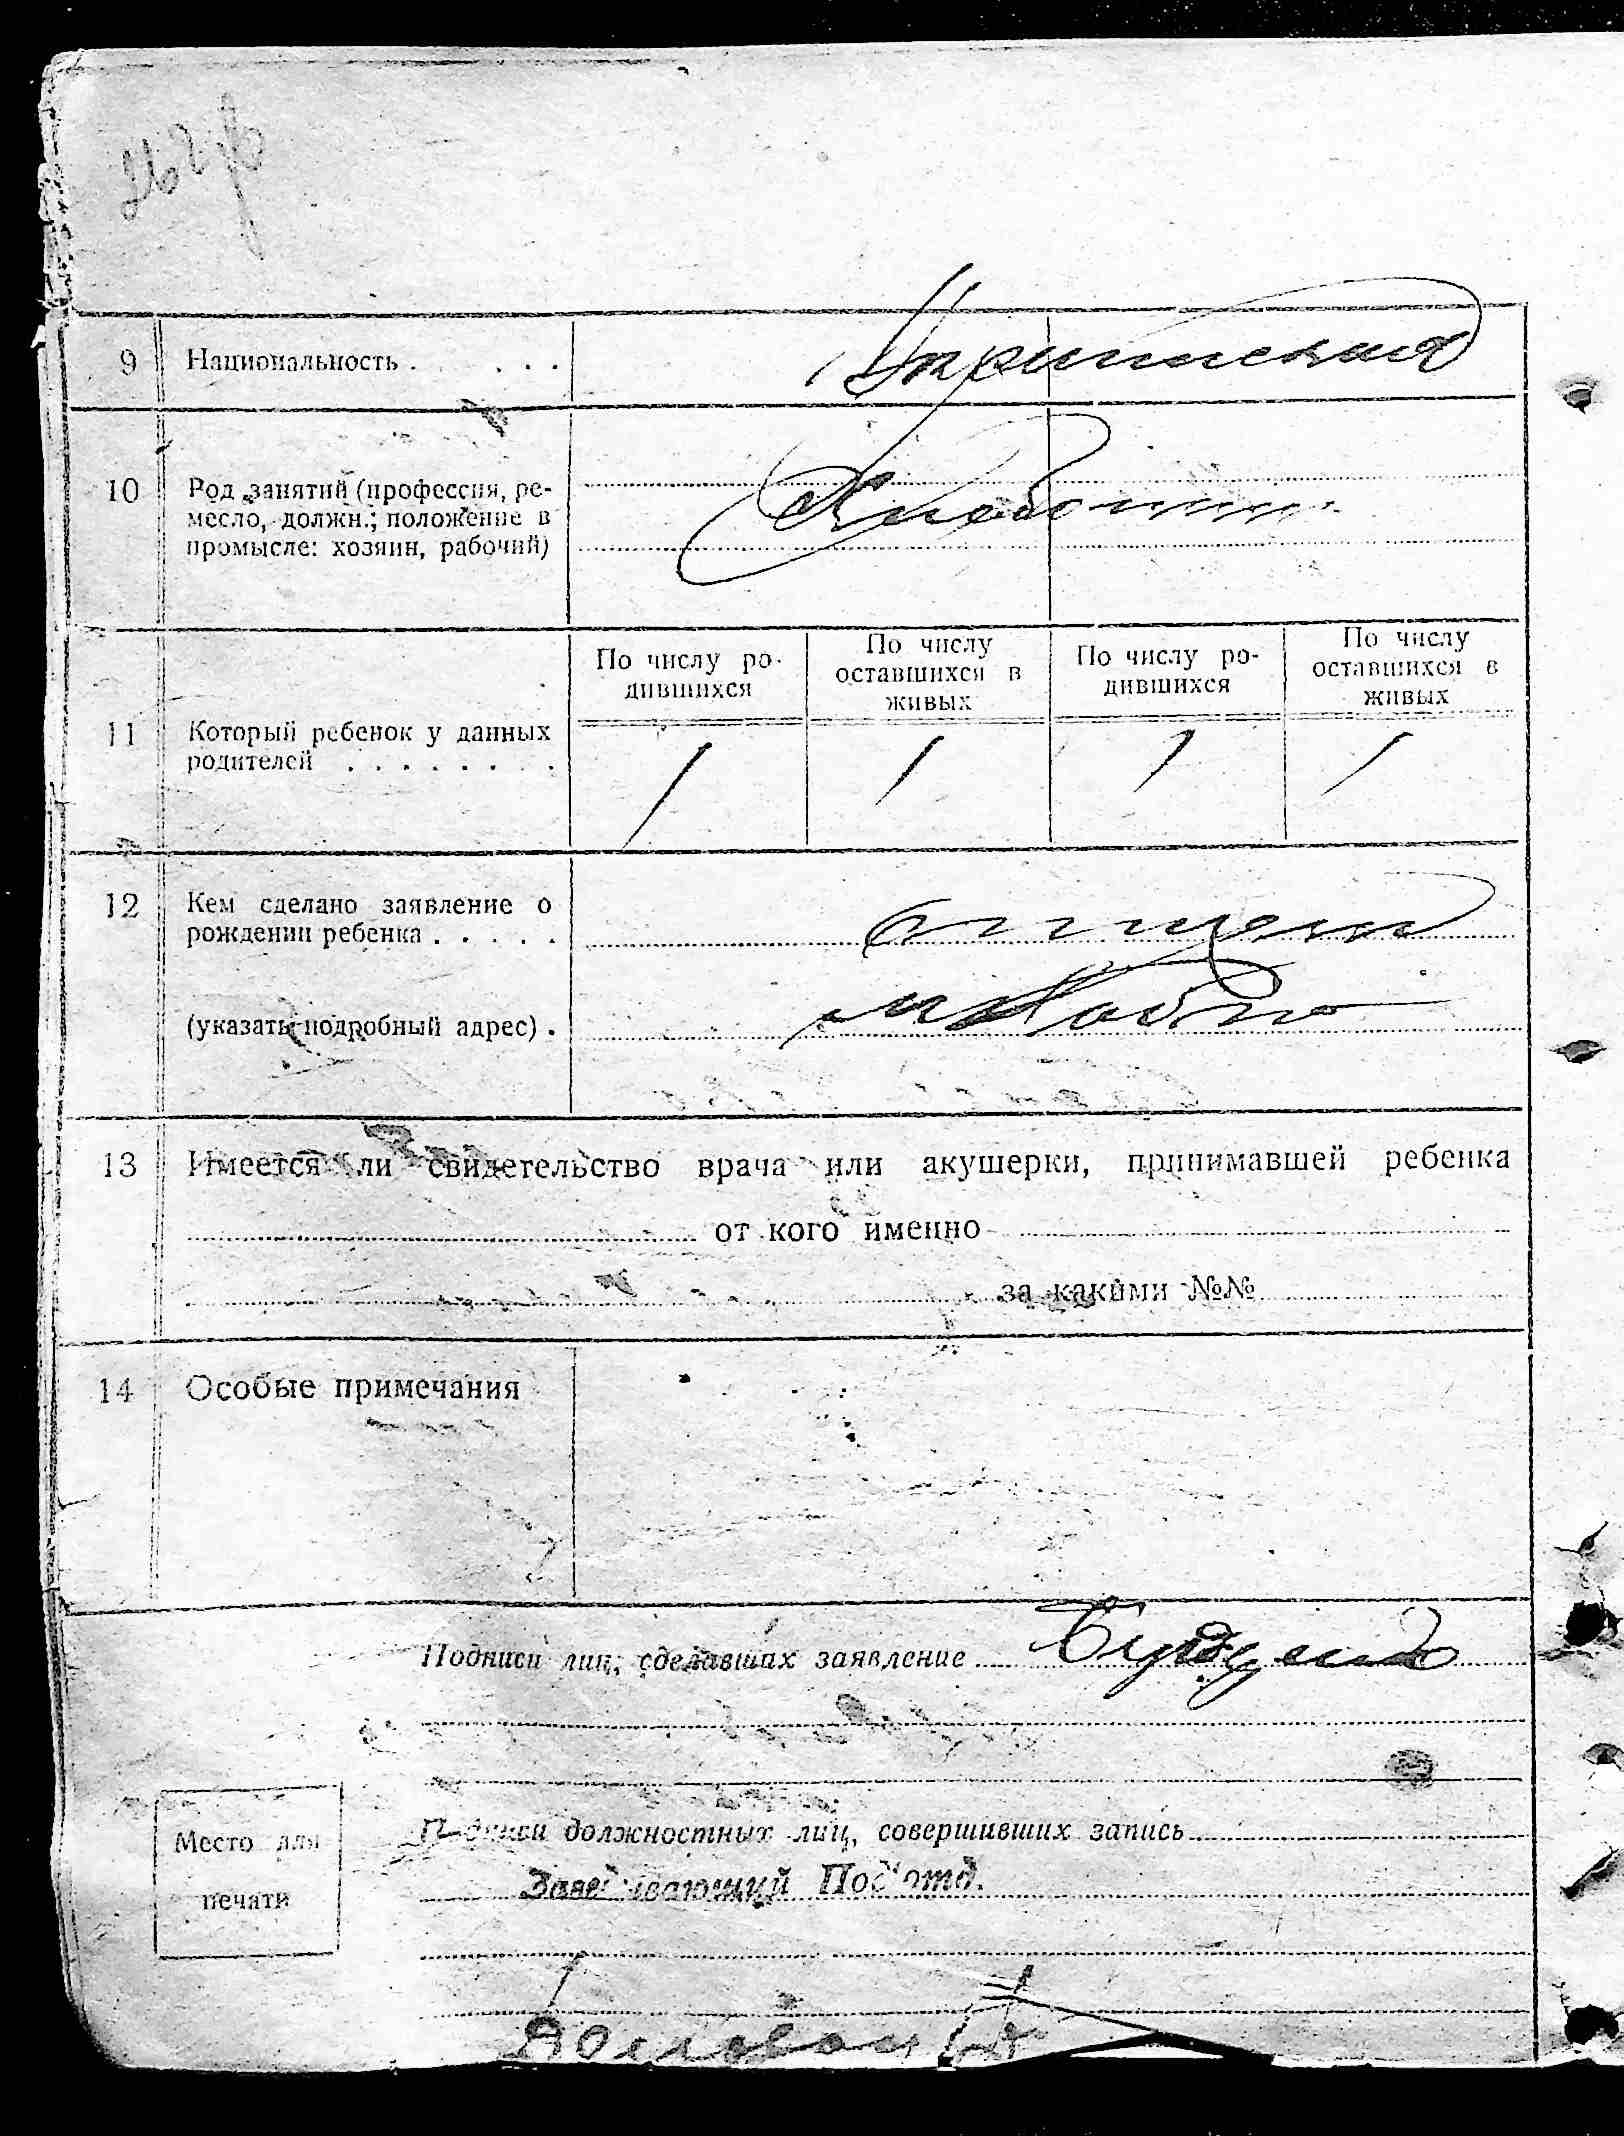 9 Национальность . . . . Украинская
10 Род занятий (профессия, ре-
месло, должн.; положение в
промысле: хозяин, рабочий)
Хлебопаш.
По числу ро-
дившихся
По числу
оставшихся в
живых
По числу ро-
дившихся
По числу
оставшихся в
живых
11 Который ребенок у данных
родителей . . . . . . . .
1 1 1 1
12 Кем сделано заявление о
рождении ребенка . . . . .
отцем
(указать подробный адрес) .
13 Имеется ли свидетельство врача или акушерки, принимавшей ребенка
от кого именно
за какими №№
14 Особые примечания
Подписи лиц, сделавших заявление
Подписи должностных лиц, совершивших запись
Место для
печати
Заведывающий Под'отд.